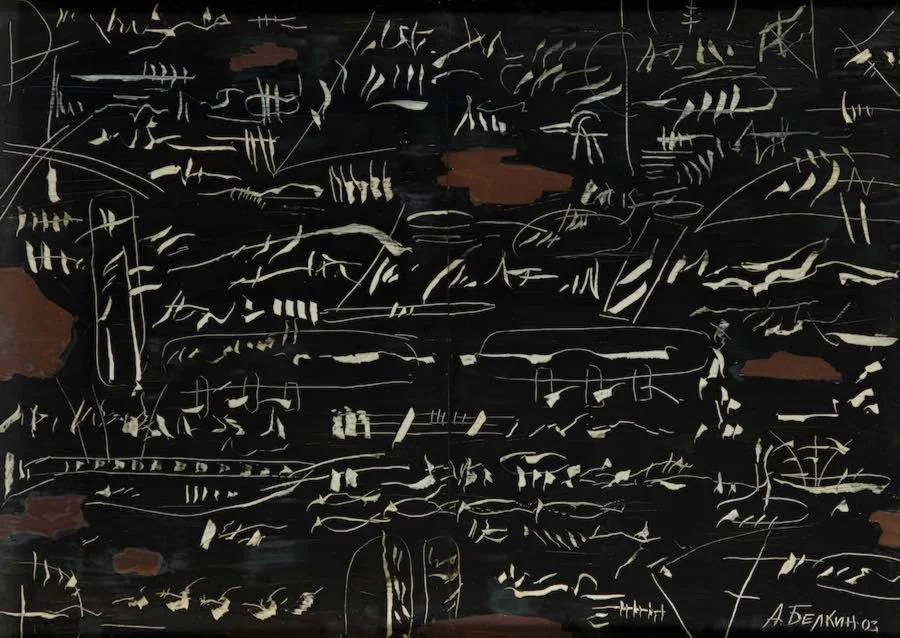 А. БЕЛКИН. 03